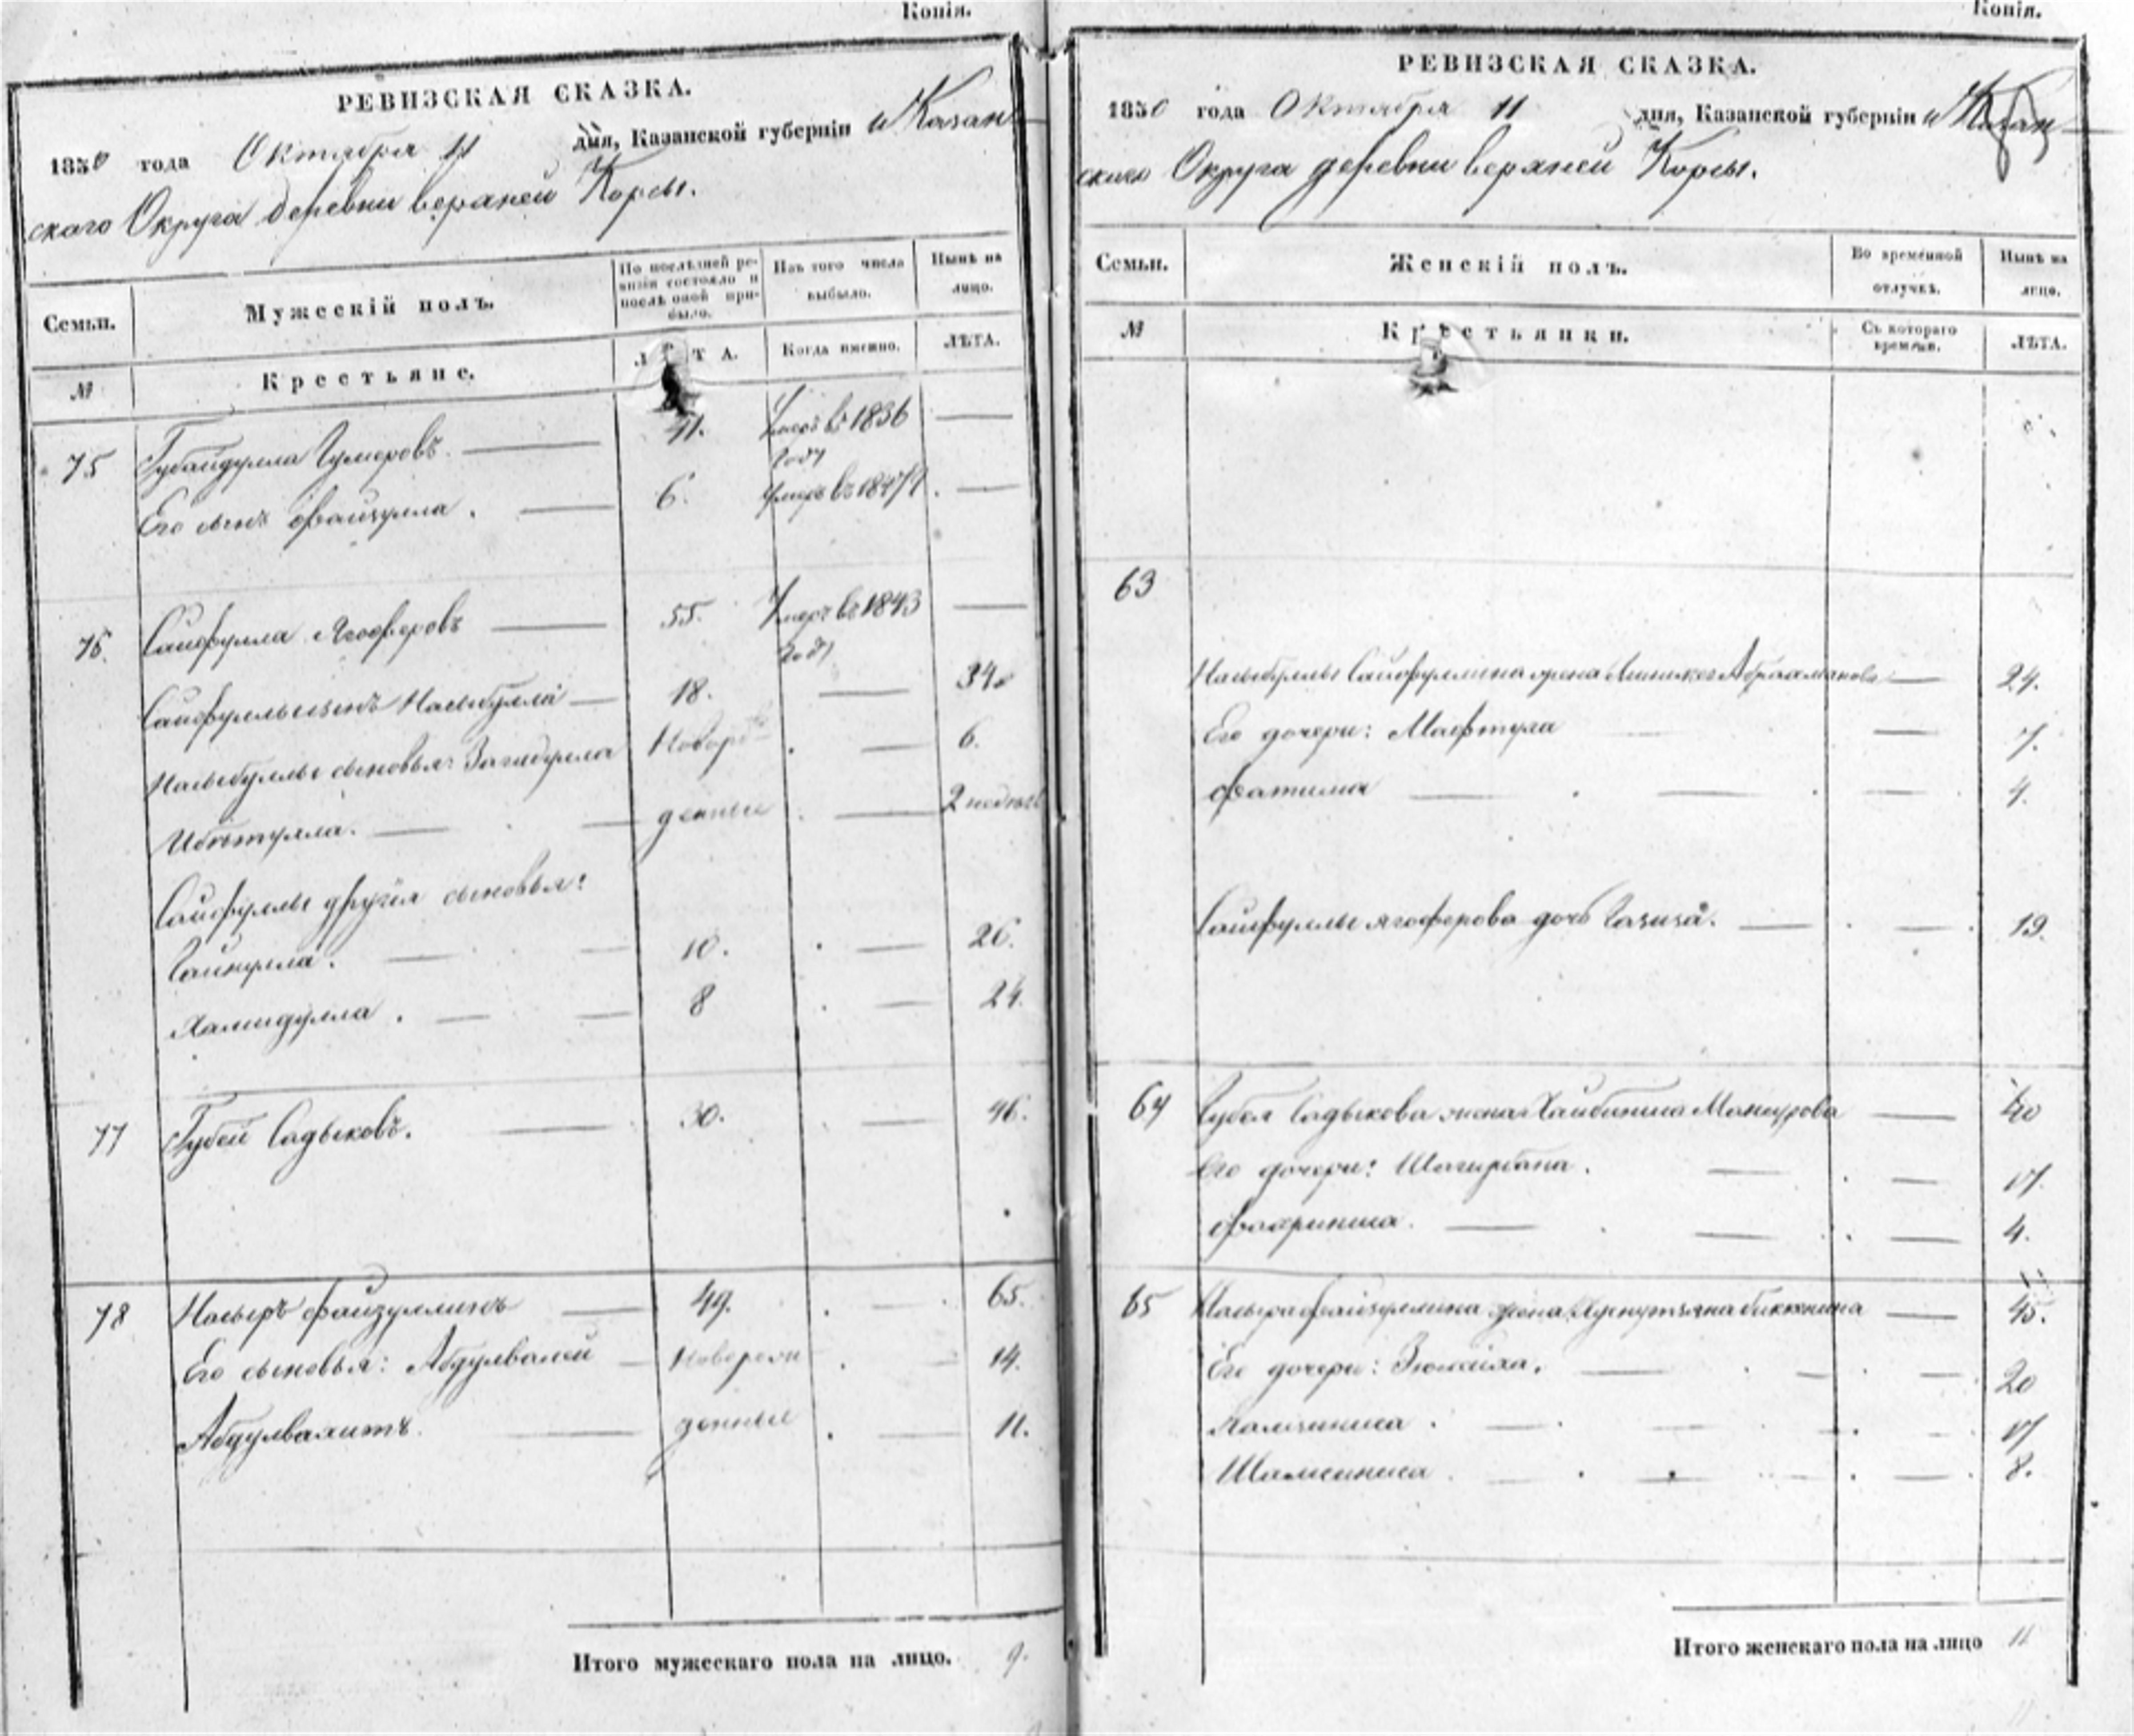 Копія.
РЕВИЗСКАЯ СКАЗКА.
1850 года Октября 11 дня, Казанской губерніи и Казан-
скаго Округа деревни верхней Корсы.
Семьи.
Мужескій полъ.
По послѣдней ре-
визіи состояло и
послѣ оной при-
было.
Изъ того числа
выбыло.
Нынѣ на
лицо.
№
Крестьяне.
ЛѢТА.
Когда именно.
ЛѢТА.
75 Губайдулла Гумеровъ. 41. Умеръ въ 1836
году
Его сынъ Файзулла. 6. умеръ въ 1847
76. Сайфулла Ягоферовъ 55. Умеръ въ 1843
году
Сайфуллы сынъ Насыбулла 18. 34.
Насыбуллы сыновья: Загидулла Новорож 6.
денные 2 недѣль
Сайфуллы другія сыновья:
Гайнулла. 10. 26.
Хамидулла. 8 24.
77 Губей Садыковъ. 30. 46.
78 Насыръ Файзуллинъ 49. 65.
Его сыновья: Абдулвалей Новорож 14.
Абдулвахитъ. денные 11.
Итого мужескаго пола на лицо. 9.
Копія.
РЕВИЗСКАЯ СКАЗКА.
1850 года Октября 11 дня, Казанской губерніи и Казан
скаго Округа деревни верхней Корсы.
Семьи.
Женскій полъ.
Во временной
отлучкѣ.
Нынѣ на
лицо.
№
Крестьянки.
Съ котораго
времени.
ЛѢТА.
63
Насыбуллы Сайфуллина жена 24.
Его дочери: Мафтуха 7.
Фатима 4.
Сайфуллы Ягоферова дочь Газиза. 19.
64 Губея Садыкова жена Манзурова 40
Его дочери: Шагирбана. 17.
4.
65 Насыра Файзуллина жена 45.
Его дочери: 20
17
Шамсиниса 8.
Итого женскаго пола на лицо 11